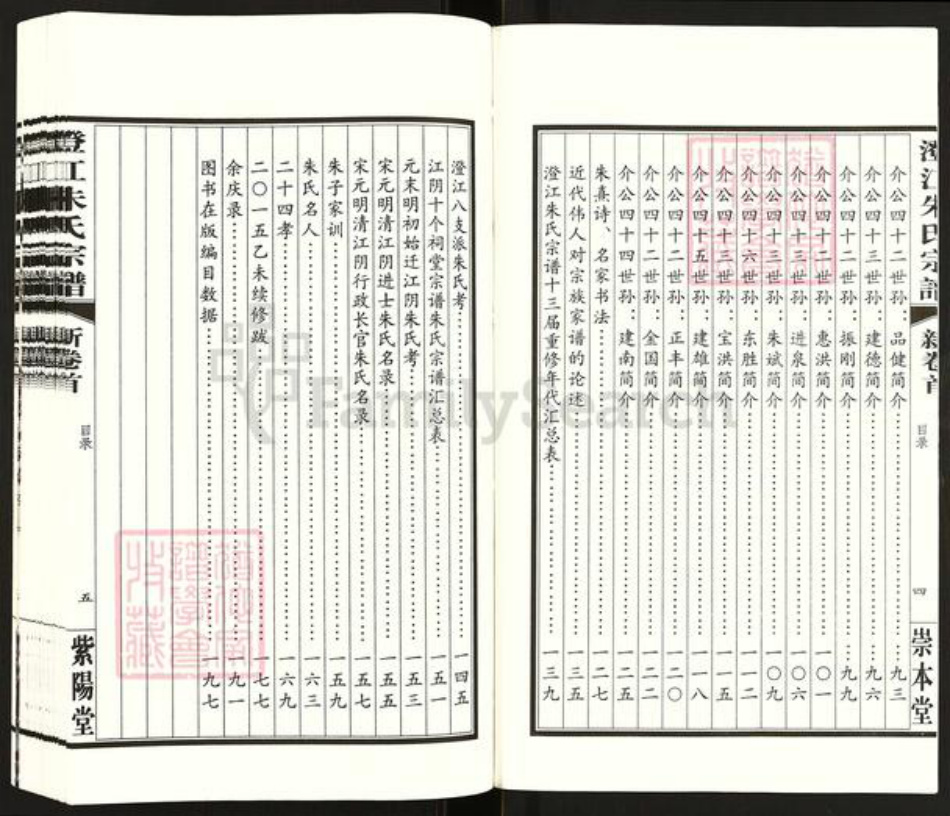 澄江朱氏宗谱
新卷首
目录
四
崇本堂
介公四十二世孙：品健简介……九三
介公四十三世孙：建德简介……九六
介公四十二世孙：振刚简介……九九
介公四十二世孙：惠洪简介……一〇一
介公四十三世孙：进泉简介……一〇六
介公四十三世孙：朱斌简介……一〇九
介公四十六世孙：东胜简介……一一二
介公四十三世孙：宝洪简介……一一五
介公四十五世孙：建雄简介……一一八
介公四十二世孙：正丰简介……一二〇
介公四十二世孙：金国简介……一二二
介公四十四世孙：建南简介……一二五
朱熹诗、名家书法……一二七
近代伟人对宗族家谱的论述……一三五
澄江朱氏宗谱十三届重修年代汇总表……一三九
澄江八支派朱氏考……一四五
江阴十个祠堂宗谱朱氏宗谱汇总表……一五一
元末明初始迁江阴朱氏考……一五三
宋元明清江阴进士朱氏名录……一五五
宋元明清江阴行政长官朱氏名录……一五七
朱子家训……一五九
朱氏名人……一六三
二十四孝……一六九
二〇一五乙未续修跋……一七七
余庆录……一九一
图书在版编目数据……一九七
澄江朱氏宗谱
新卷首
目录
五
紫陽堂
FamilySearch